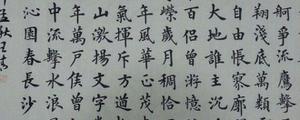 舸爭流鷹擊
翔淺底萬類
自由悵寥廓
大地誰主沉
百侶曾遊憶
嶸歲月稠恰
年風華正茂
氣揮斥方遒
山激揚文字
年萬戶侯曾
中流擊水浪
沁園春長沙
秋王